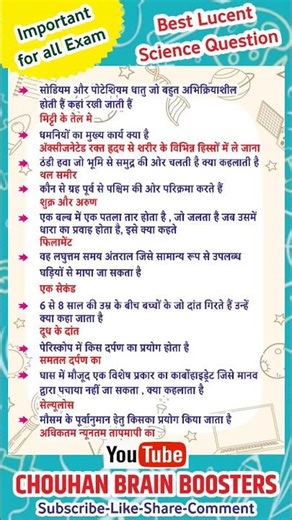 Important
for all Exam
Best Lucent
Science Question
सोडियम और पोटेशियम धातु जो बहुत अभिक्रियाशील
होती हैं कहां रखी जाती हैं
मिट्टी के तेल मे
धमनियों का मुख्य कार्य क्या है
ऑक्सीजनेटेड रक्त ह्रदय से शरीर के विभिन्न हिस्सों में ले जाना
ठंडी हवा जो भूमि से समुद्र की ओर चलती है क्या कहलाती है
थल समीर
कौन से ग्रह पूर्व से पश्चिम की ओर परिक्रमा करते हैं
शुक्र और अरुण
एक बल्ब में एक पतला तार होता है , जो जलता है जब उसमें
धारा का प्रवाह होता है, इसे क्या कहते
फिलामेंट
वह लघुत्तम समय अंतराल जिसे सामान्य रूप से उपलब्ध
घड़ियों से मापा जा सकता है
एक सेकंड
6 से 8 साल की उम्र के बीच बच्चों के जो दांत गिरते हैं उन्हें
क्या कहा जाता है
दूध के दांत
पेरिस्कोप में किस दर्पण का प्रयोग होता है
समतल दर्पण का
घास में मौजूद एक विशेष प्रकार का कार्बोहाइड्रेट जिसे मानव
द्वारा पचाया नहीं जा सकता , क्या कहलाता है
सेल्युलोस
मौसम के पूर्वानुमान हेतु किसका प्रयोग किया जाता है
अधिकतम न्यूनतम तापमापी का
YouTube
CHOUHAN BRAIN BOOSTERS
Subscribe-Like-Share-Comment